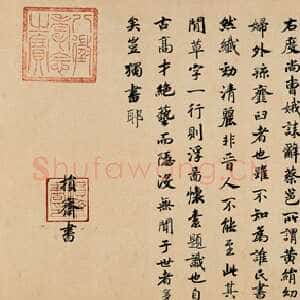 右度尚曹娥誄辭蔡邕所謂黃絹幼
婦外孫齏臼者也雖不知為誰氏書
然纖勁清麗非晉人不能至此其
間草字一行則浮圖懷素題識也自
古高才絕藝而隱沒無聞于世者多
矣豈獨書耶
損齋書
八徵
耄念
之寶
Shufawang.cn